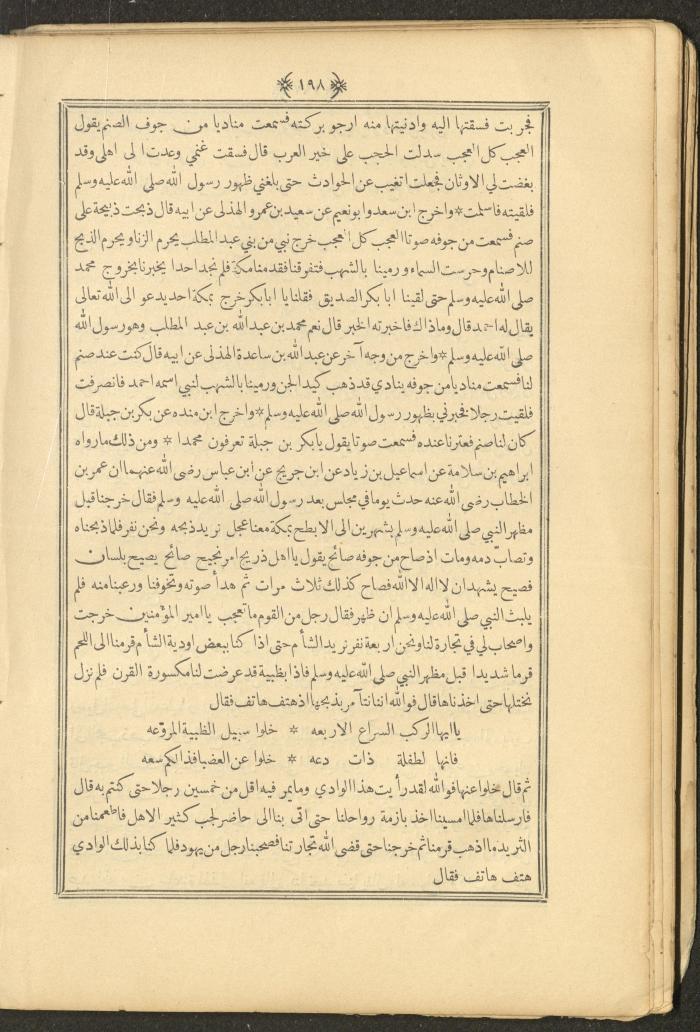 ١٩٨
فجربت فسقتها اليه وادنيتها منه ارجو بركته فسمعت مناديا من جوف الصنم يقول
العجب كل العجب سدلت الحجب على خير العرب قال فسقت غنمي وعدت الى اهلى وقد
بغضت لي الاوثان فجعلت اتغيب عن الحوادث حتى بلغني ظهور رسول الله صلى الله عليه وسلم
فلقيته فاسلمت * واخرج ابن سعد وابو نعيم عن سعيد بن عمرو الهذلى عن ابيه قال ذبحت ذبيحة على
صنم فسمعت من جوفه صوتا العجب كل العجب خرج نبي من بني عبد المطلب يحرم الزنا ويحرم الذبح
للاصنام وحرست السماء ورمينا بالشهب فتفرقنا فقدمنا مكة فلم نجد احدا يخبرنا بخروج محمد
صلى الله عليه وسلم حتى لقينا ابا بكر الصديق فقلنا يا ابا بكر خرج بمكة احد يدعو الى الله تعالى
يقال له احمد قال وما ذاك فاخبرته الخبر قال نعم محمد بن عبد الله بن عبد المطلب وهو رسول الله
صلى الله عليه وسلم * واخرج من وجه آخر عن عبد الله بن ساعدة الهذلى عن ابيه قال كنت عند صنم
لنا فسمعت مناديا من جوفه ينادي قد ذهب كيد الجن ورمينا بالشهب لنبي اسمه احمد فانصرفت
فلقيت رجلا فخبرني بظهور رسول الله صلى الله عليه وسلم * واخرج ابن منده عن بكر بن جبلة قال
كان لنا صنم فعترنا عنده فسمعت صوتا يقول يا بكر بن جبلة تعرفون محمدا * ومن ذلك ما رواه
ابراهيم بن سلامة عن اسماعيل بن زياد عن ابن جريج عن ابن عباس رضى الله عنهما ان عمر بن
الخطاب رضى الله عنه حدث يوما في مجلس بعد رسول الله صلى الله عليه وسلم فقال خرجنا قبل
مظهر النبي صلى الله عليه وسلم بشهرين الى الابطح بمكة معنا عجل نريد ذبحه ونحن نفر فلما ذبحناه
وتصابّ دمه ومات اذ صاح من جوفه صائح يقول يا اهل ذريح امر نجيح صائح يصيح بلسان
فصيح يشهد ان لا اله الا الله فصاح كذلك ثلاث مرات ثم هدأ صوته وتخوفنا ورعبنا منه فلم
يلبث النبي صلى الله عليه وسلم ان ظهر فقال رجل من القوم ما تعجب يا امير المؤمنين خرجت
واصحاب لي في تجارة لنا ونحن اربعة نفر نريد الشأم حتى اذا كنا ببعض اودية الشأم قرمنا الى اللحم
قرما شديدا قبل مظهر النبي صلى الله عليه وسلم فاذا بظبية قد عرضت لنا مكسورة القرن فلم نزل
نختلها حتى اخذناها قال فوالله اننا نتآمر بذبحها اذ هتف هاتف فقال
يا ايها الركب السراع الاربعه * خلوا سبيل الظبية المروّعه
فانها لطفلة ذات دعه * خلوا عن العضبا فذالكم سعه
ثم قال خلوا عنها فوالله لقد رأيت هذا الوادي وما يمر فيه اقل من خمسين رجلا حتى كنتم به قال
فارسلناها فلما امسينا اخذ بازمة رواحلنا حتى اتى بنا الى حاضر لجب كثير الاهل فاطعمنا من
الثريد ما اذهب قرمنا ثم خرجنا حتى قضى الله تجارتنا فصحبنا رجل من يهود فلما كنا بذلك الوادي
هتف هاتف فقال